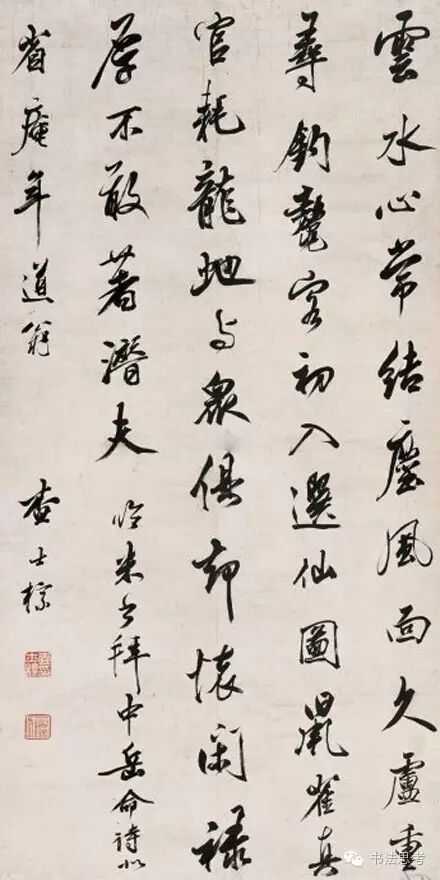 雲水心常結塵風面久盧重
尋釣鼇客初入選仙圖鼠雀真
官耗龍虵与衆俱却懷閑禄
厚不敢著潛夫 臨米書拜中岳命詩似
省庵年道翁 查士標
书法思考